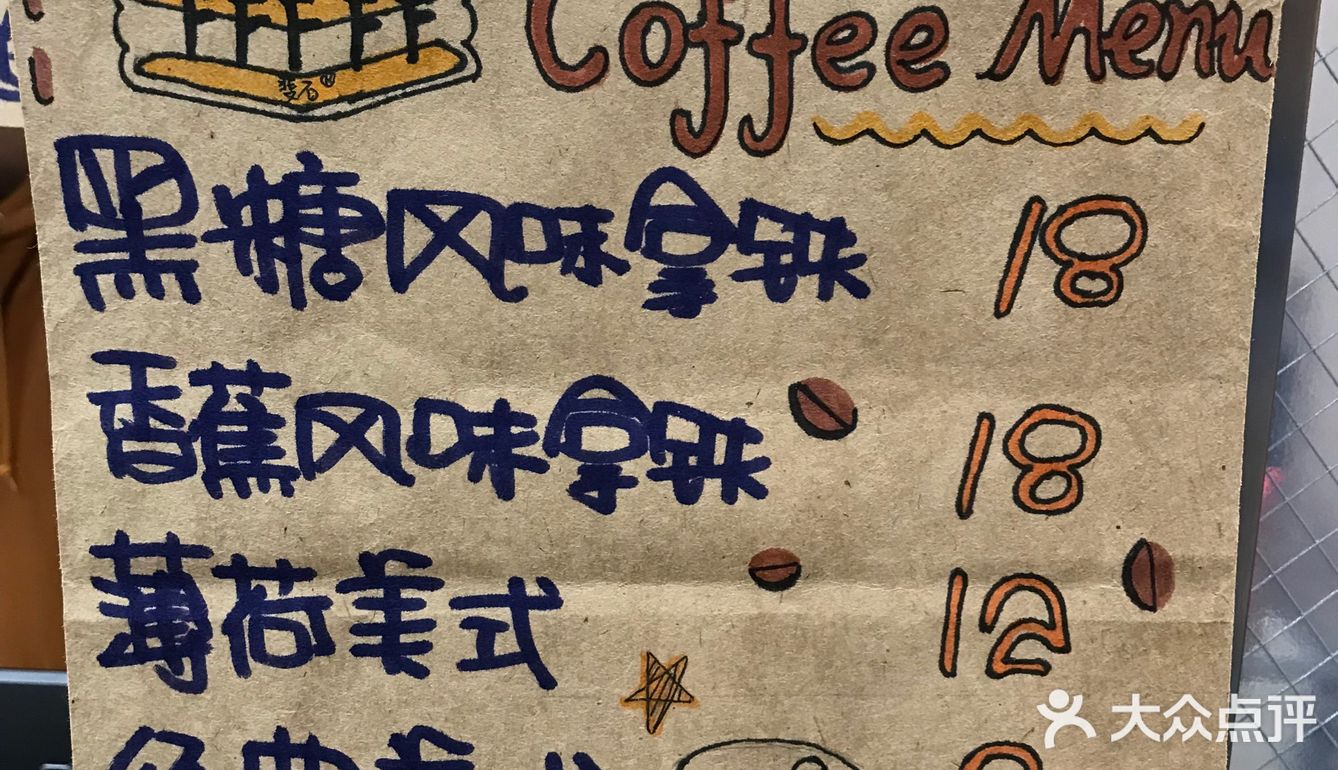 Coffee Menu
黑糖风味拿铁 18
香蕉风味拿铁 18
薄荷美式 12
经典美式
大众点评